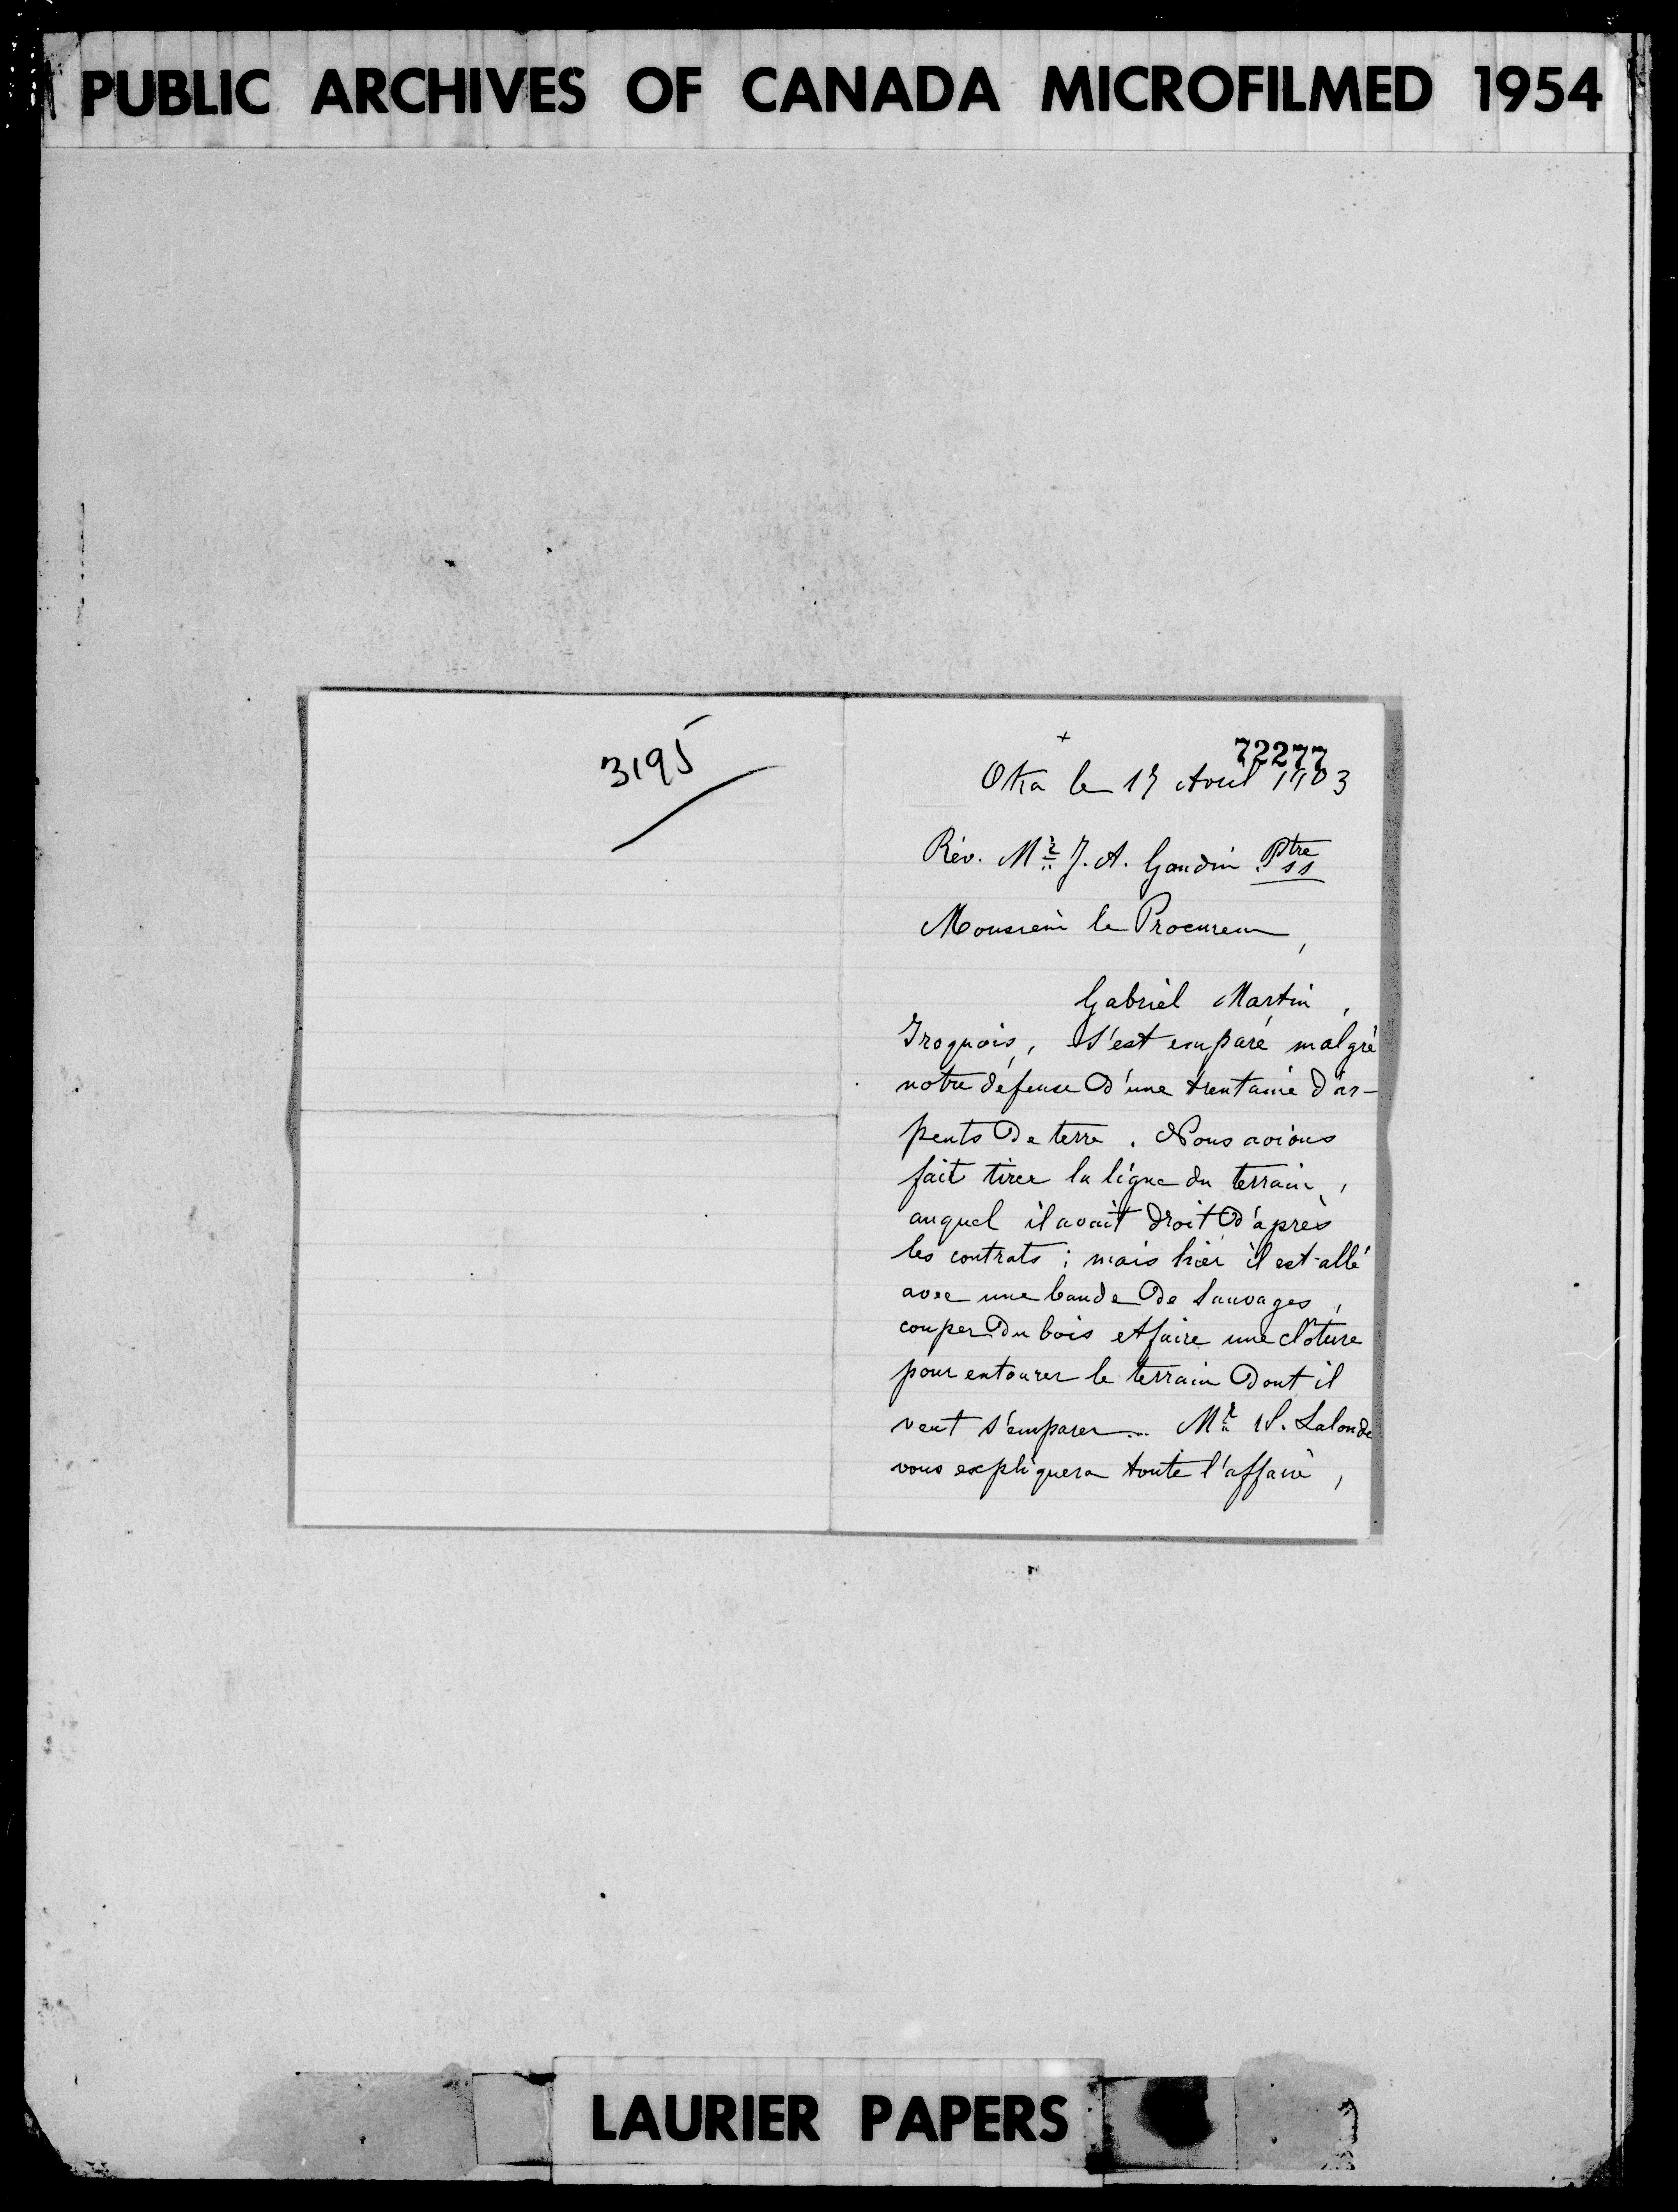 PUBLIC ARCHIVES OF CANADA MICROFILMED 1954
3195
+
72277
Oka le 17 Avril 1903
Rév. Mr J. A. Gaudin Ptre
ss
Monsieur le Procureur,
Gabriel Martin,
Iroquois, s'est emparé malgré
notre défense d'une trentaine d'ar-
pents de terre. Nous avions
fait tirer la ligne du terrain,
auquel il avait droit d'après
les contrats; mais hier il est allé
avec une bande de Sauvages,
couper du bois et faire une clôture
pour entourer le terrain dont il
veut s'emparer... Mr W. Lalonde
vous expliquera toute l'affaire,
LAURIER PAPERS